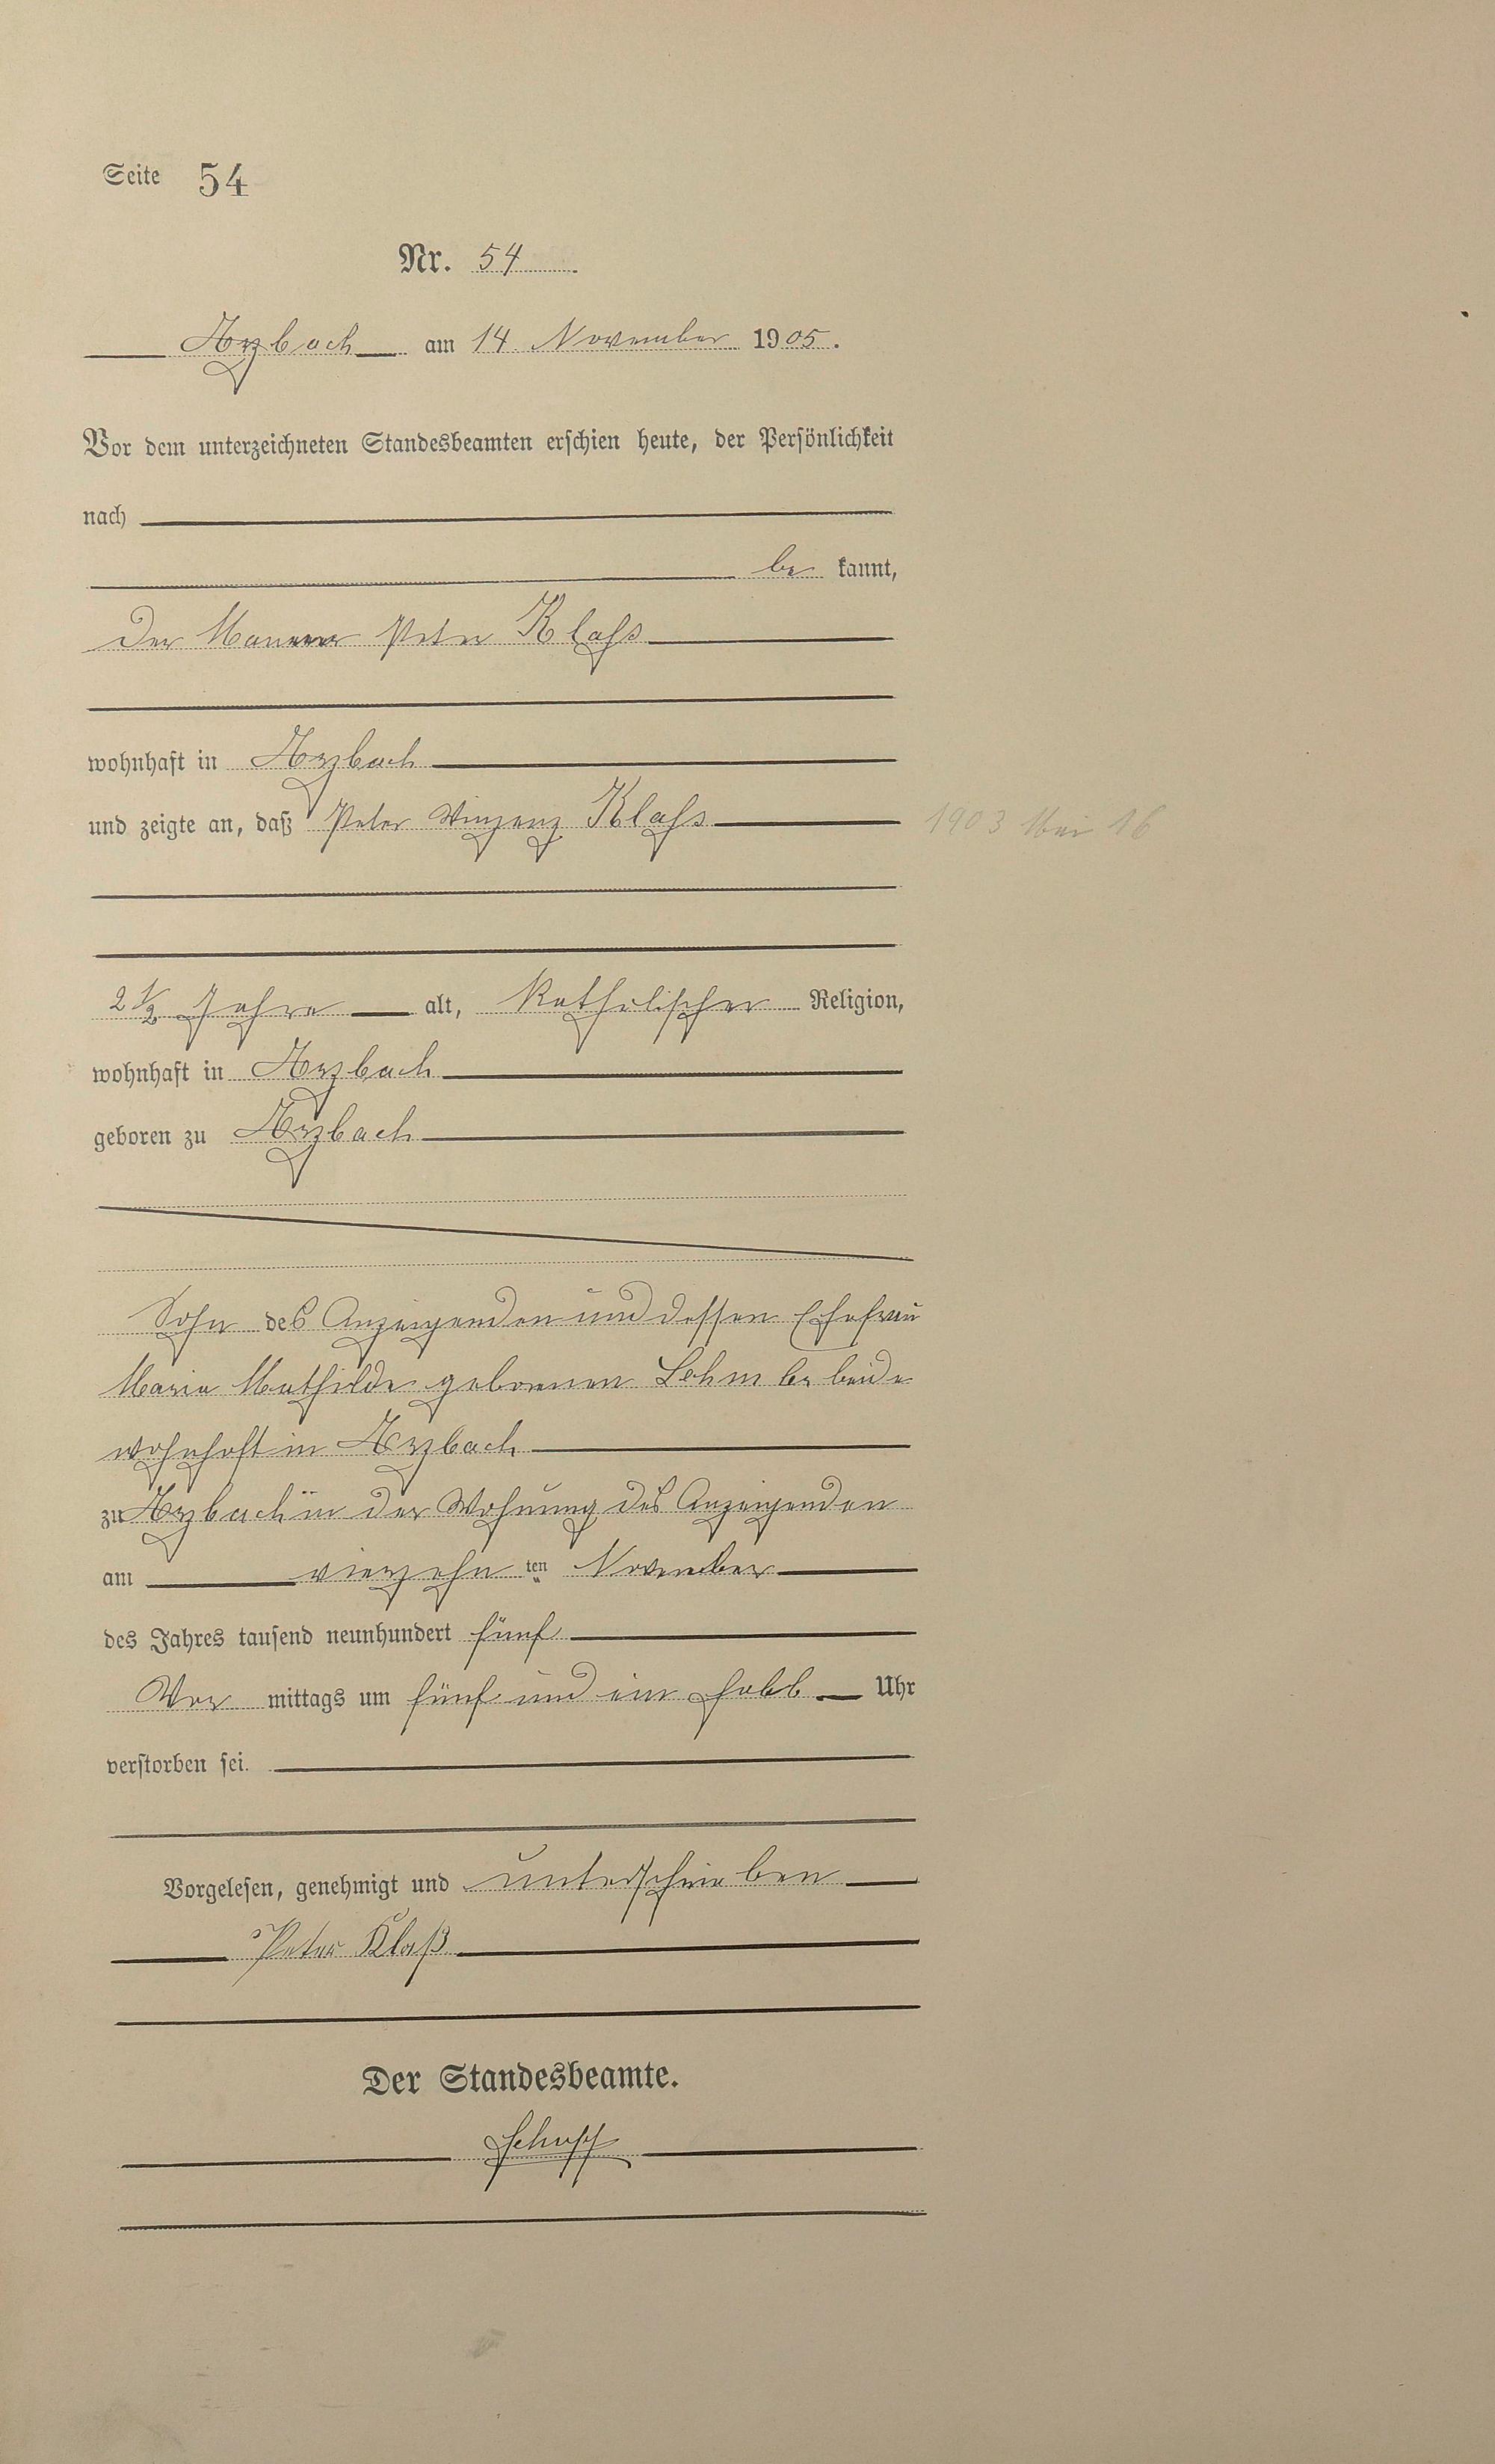 Seite 54
Nr. 54
Arzbach am 14. November 1905.
Vor dem unterzeichneten Standesbeamten erschien heute, der Persönlichkeit
nach
be kannt,
Der Maurer Peter Klaß
wohnhaft in Arzbach
und zeigte an, daß Peter Vinzenz Klaß 1903 Mai 16
2 1/2 Jahre alt, Katholischer Religion,
wohnhaft in Arzbach
geboren zu Arzbach
Sohn des Anzeigenden und dessen Ehefrau
Maria Mathilde geborenen beide
wohnhaft in Arzbach
zu Arzbach in der Wohnung des Anzeigenden
am vierzehn ten November
des Jahres tausend neunhundert fünf
Vor mittags um fünf und ein halb Uhr
verstorben sei.
Vorgelesen, genehmigt und unterschrieben
Peter Klaß
Der Standesbeamte.